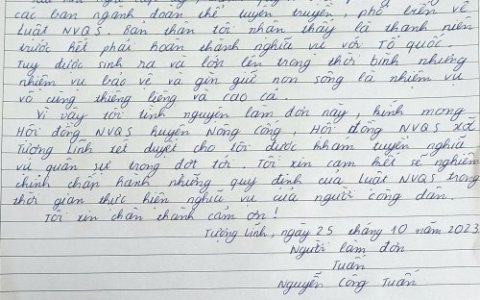 các ban ngành, đoàn thể tuyên truyền, phổ biến về
Luật NVQS. Bản thân tôi nhận thấy là thanh niên
trước hết phải hoàn thành nghĩa vụ với Tổ quốc.
Tuy được sinh ra và lớn lên trong thời bình nhưng
nhiệm vụ bảo vệ và gìn giữ non sông là nhiệm vụ
vô cùng thiêng liêng và cao cả.
Vì vậy tôi tình nguyện làm đơn này, kính mong
Hội đồng NVQS huyện Nông Cống, Hội đồng NVQS xã
Tượng Lĩnh xét duyệt cho tôi được khám tuyển nghĩa
vụ quân sự trong đợt tới. Tôi xin cam kết sẽ nghiêm
chỉnh chấp hành những quy định của Luật NVQS trong
thời gian thực hiện nghĩa vụ của người công dân.
Tôi xin chân thành cảm ơn!
Tượng Lĩnh, ngày 25 tháng 10 năm 2023
Người làm đơn
Tuấn
Nguyễn Công Tuấn